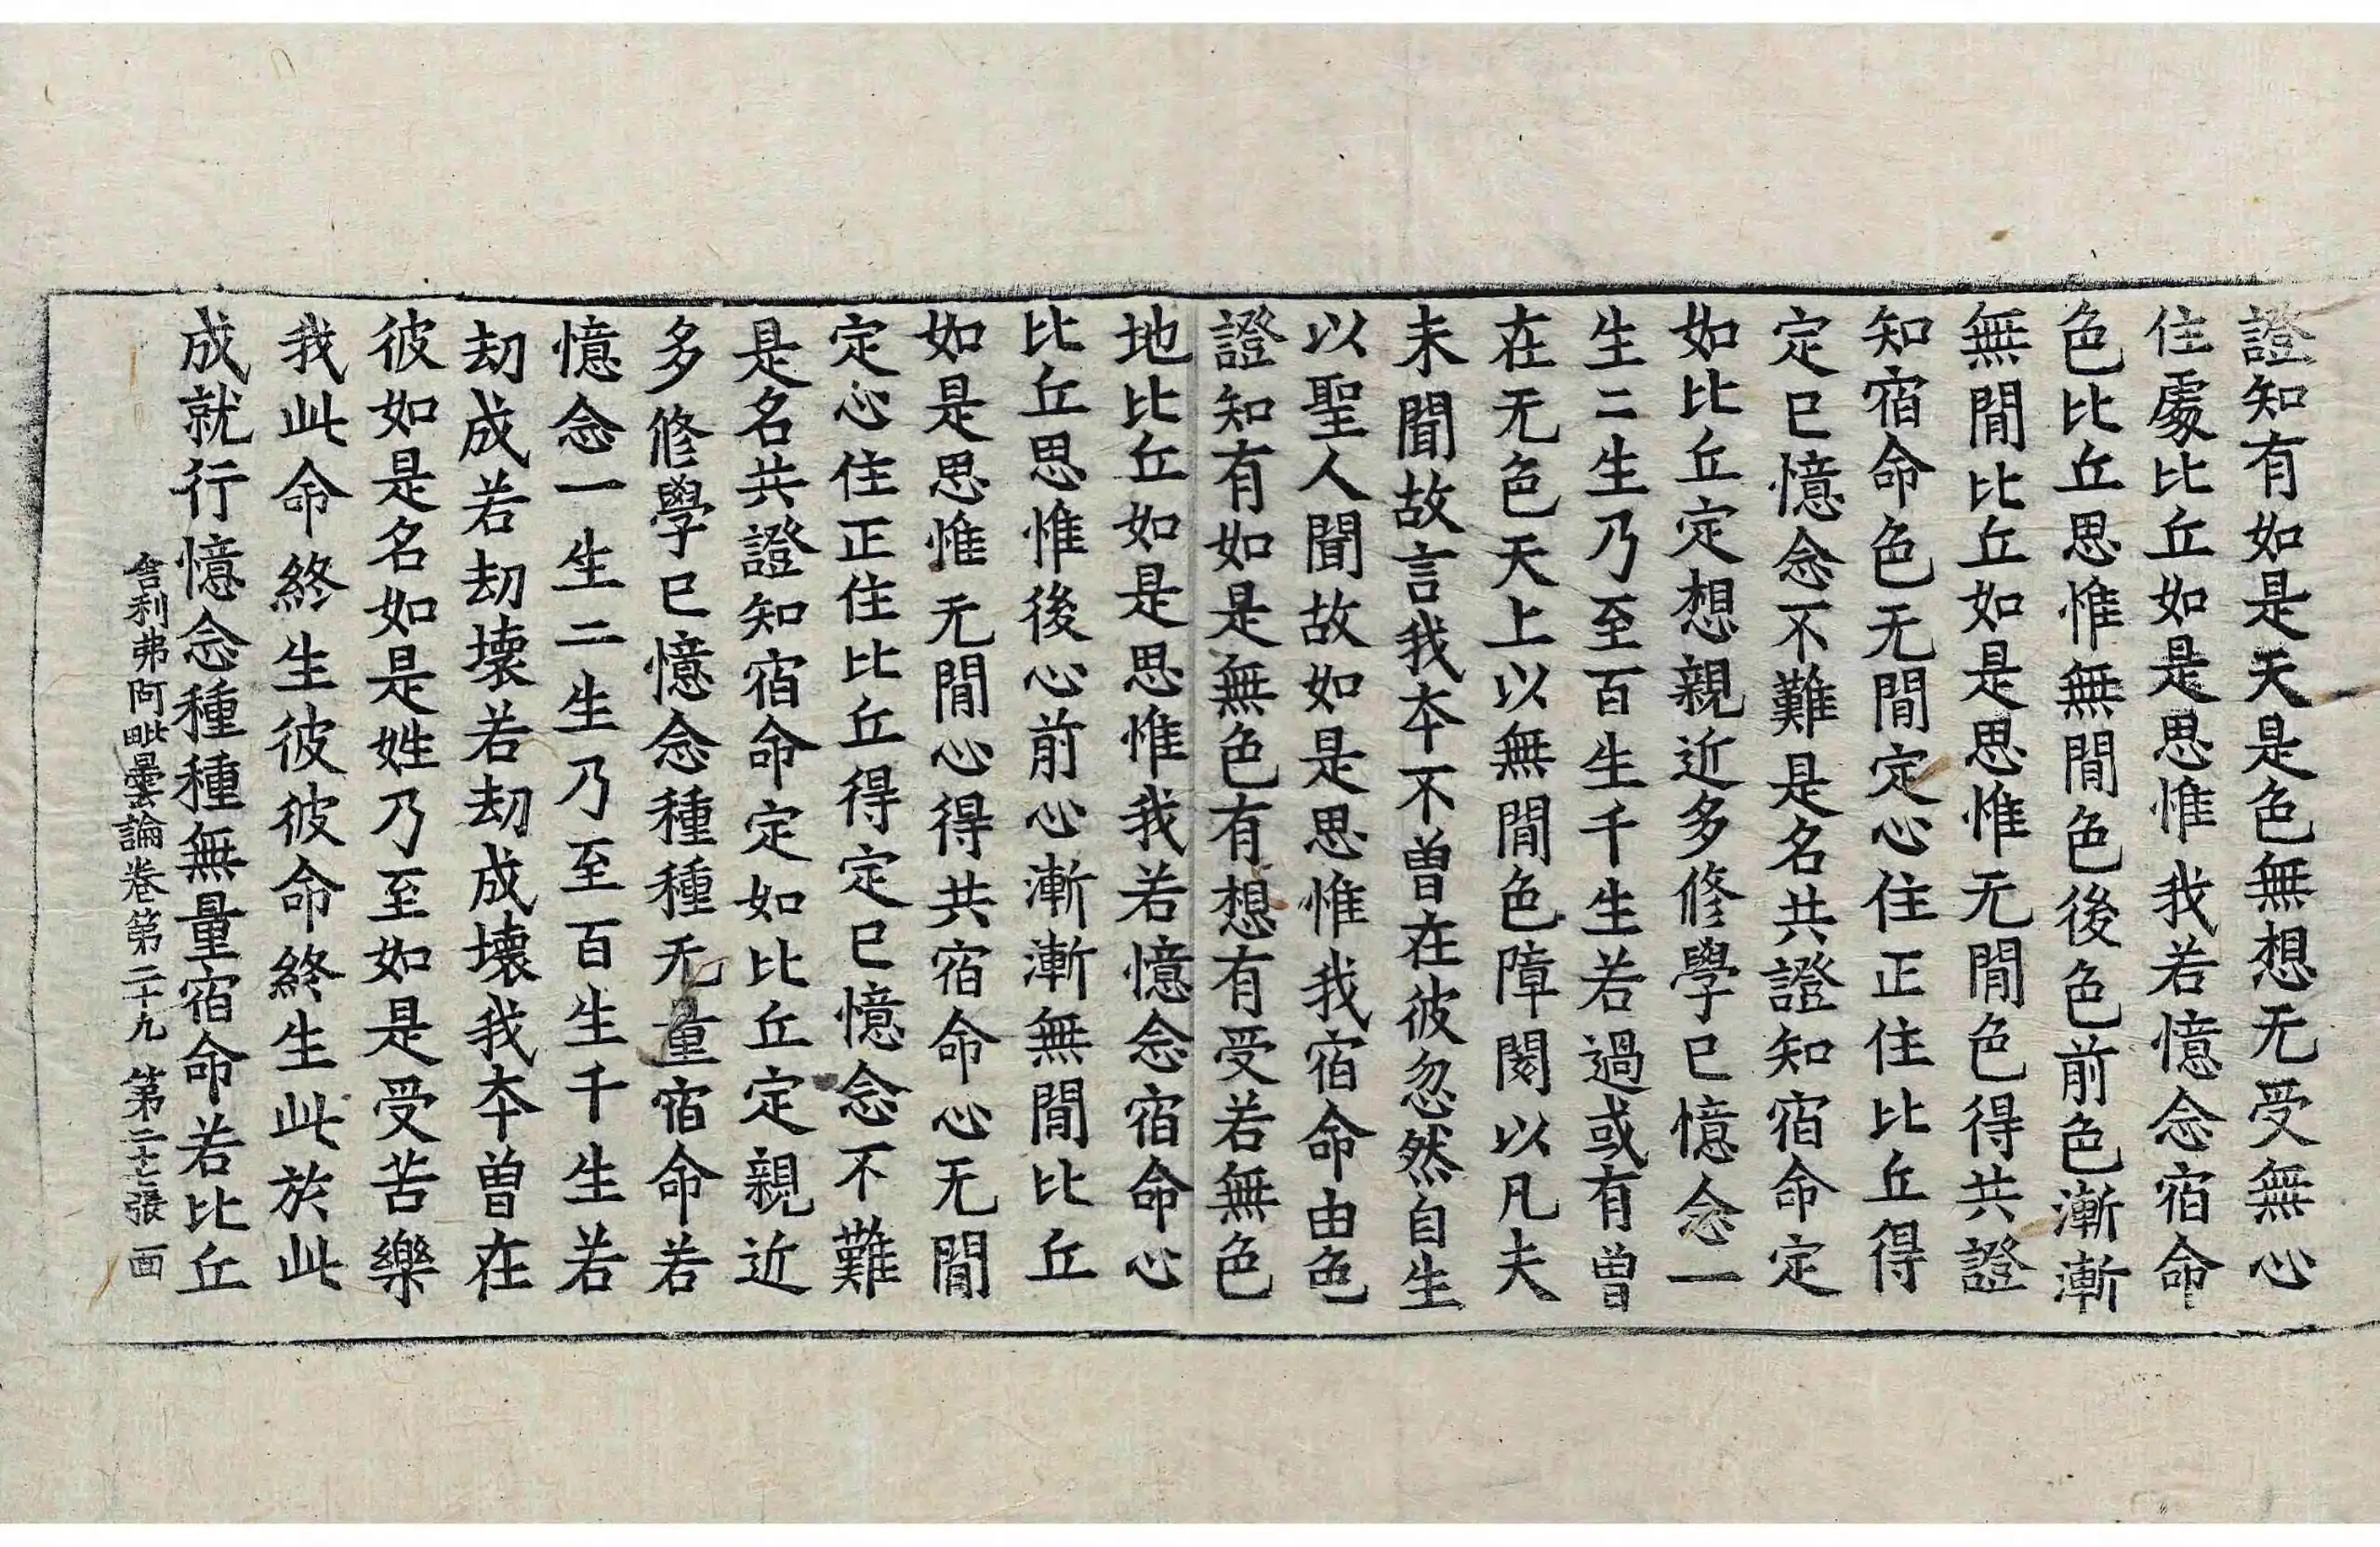 證知有如是天是色無想无受無心
住處比丘如是思惟我若憶念宿命
色比丘思惟無間色後色前色漸漸
無間比丘如是思惟无間色得共證
知宿命色无間定心住正住比丘得
定已憶念不難是名共證知宿命定
如比丘定想親近多修學已憶念一
生二生乃至百生千生若過或有曾
在无色天上以無間色障閡以凡夫
未聞故言我本不曾在彼忽然自生
以聖人聞故如是思惟我宿命由色
證知有如是無色有想有受若無色
地比丘如是思惟我若憶念宿命心
比丘思惟後心前心漸漸無間比丘
如是思惟无間心得共宿命心无間
定心住正住比丘得定已憶念不難
是名共證知宿命定如比丘定親近
多修學已憶念種種无量宿命若
憶念一生二生乃至百生千生若
劫成若劫壞若劫成壞我本曾在
彼如是名如是姓乃至如是受苦樂
我此命終生彼彼命終生此於此
成就行憶念種種無量宿命若比丘
舍利弗阿毗曇論卷第二十九 第二十七張 畫